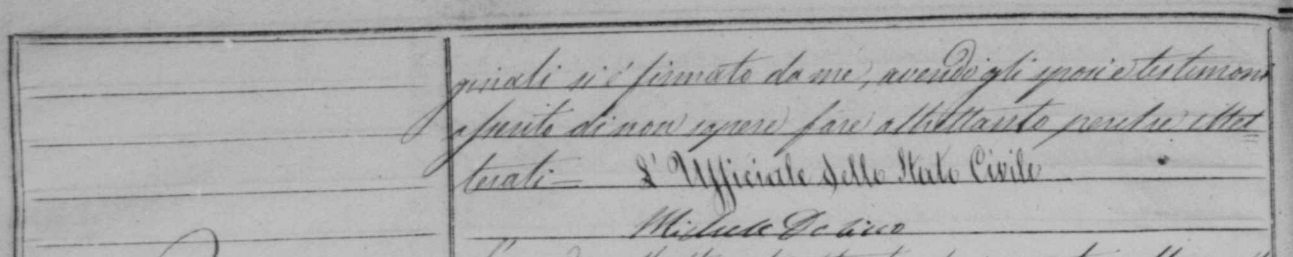 si è firmato da me, avendo gli sposi e testimoni
asserito di non sapere fare altrettanto perché illet=
terati=
L'Ufficiale dello Stato Civile
Michele